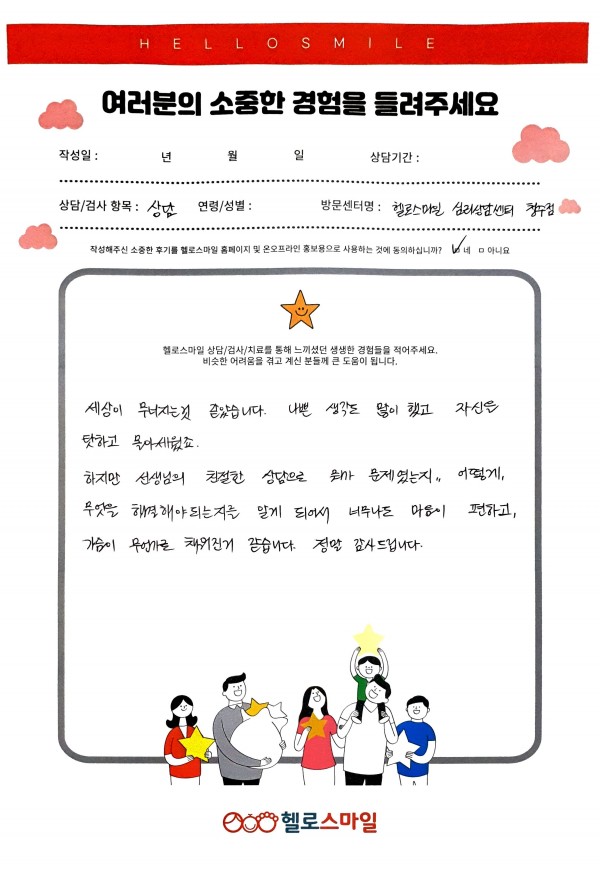 HELLOSMILE
여러분의 소중한 경험을 들려주세요
작성일 : 년 월 일 상담기간 :
상담/검사 항목 : 상담 연령/성별 : 방문센터명 : 헬로스마일 심리상담센터 청수점
작성해주신 소중한 후기를 헬로스마일 홈페이지 및 온오프라인 홍보용으로 사용하는 것에 동의하십니까? ☑ 네 □ 아니요
헬로스마일 상담/검사/치료를 통해 느끼셨던 생생한 경험들을 적어주세요.
비슷한 어려움을 겪고 계신 분들께 큰 도움이 됩니다.
세상이 무너지는것 같았습니다. 나쁜 생각도 많이 했고 자신을
탓하고 몰아세웠죠.
하지만 선생님의 친절한 상담으로 뭐가 문제였는지,, 어떻게,
무엇을 해결해야되는지를 알게 되어서 너무나도 마음이 편하고,
가슴이 무언가로 채워진거 같습니다. 정말 감사드립니다.
헬로스마일